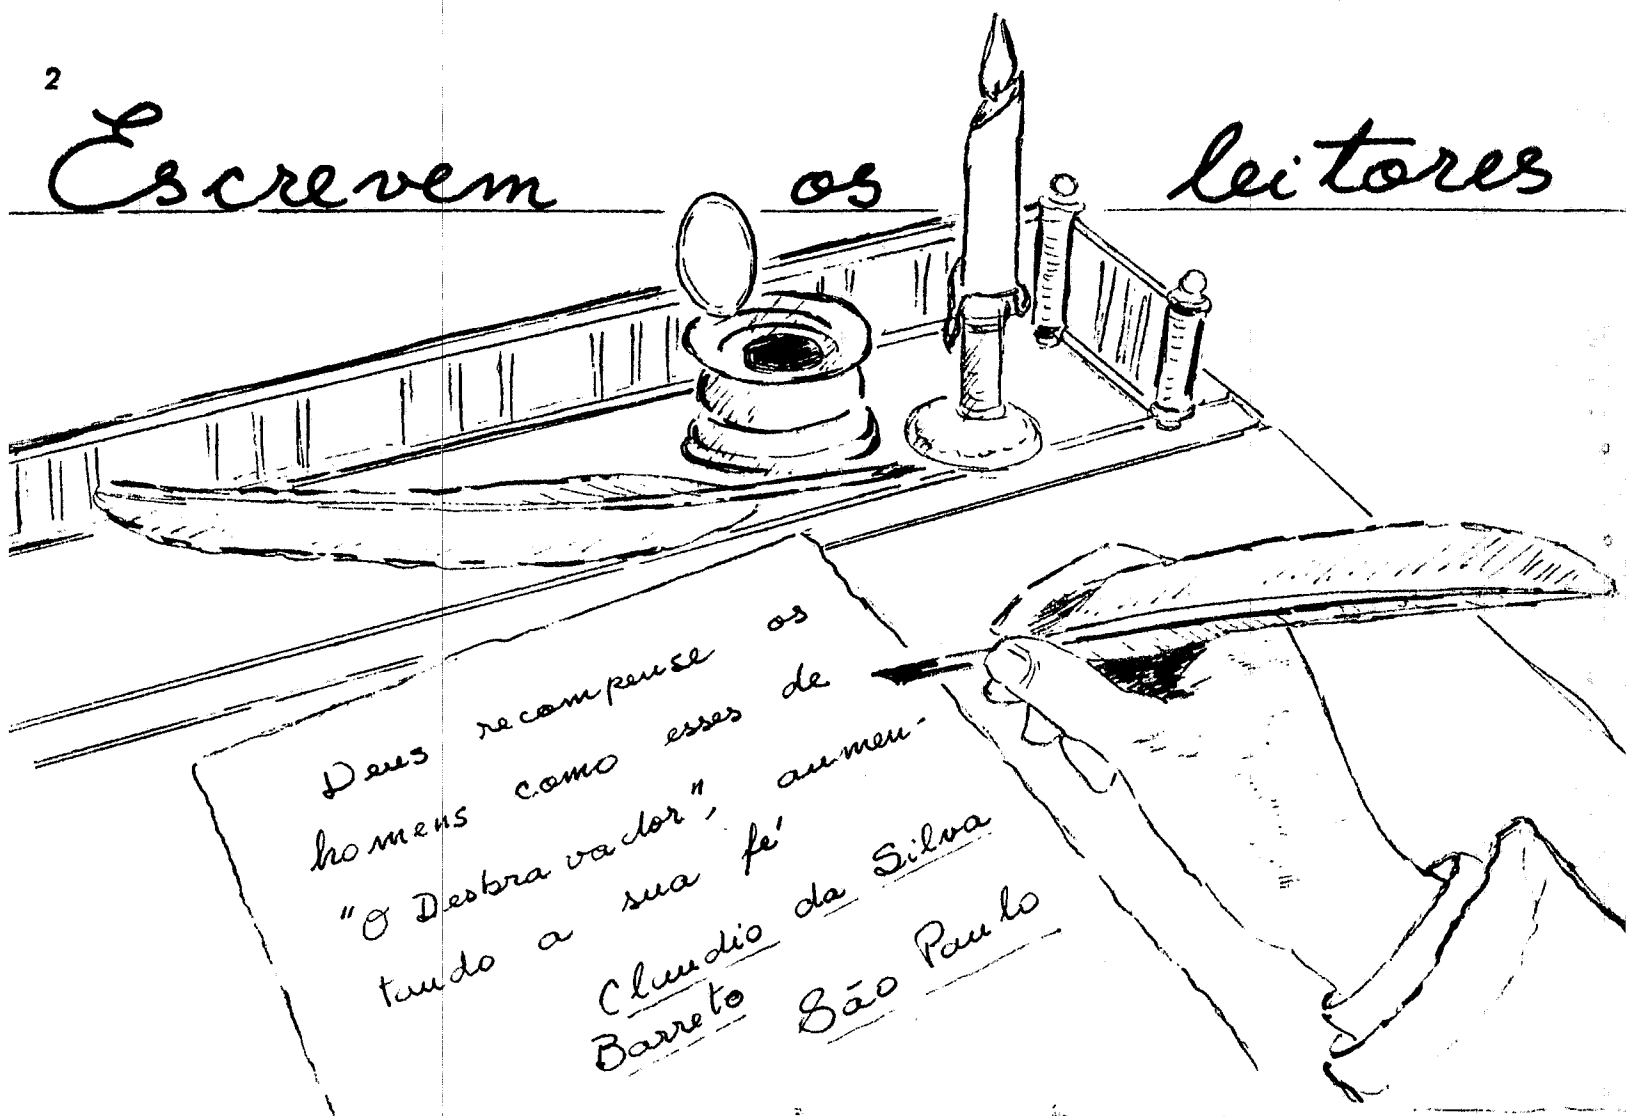 2
Escrevem os leitores
Deus recompense os
homens como esses de
"O Desbravador", aumen-
tando a sua fé
Claudio da Silva
Barreto São Paulo